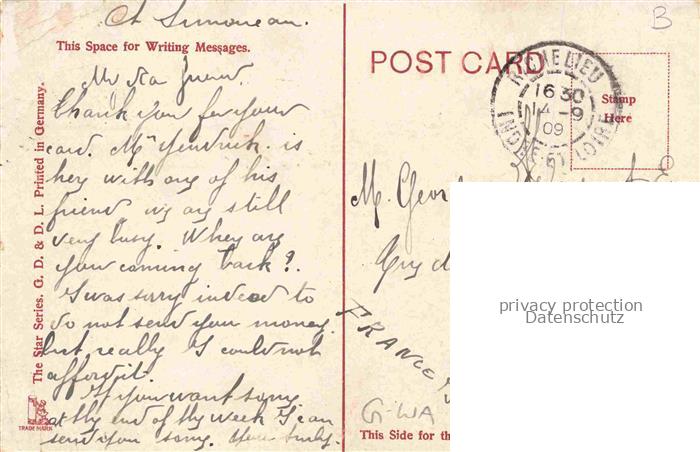 Ch Simoneau.
This Space for Writing Messages.
My
Thank you for your
card. Mr is
hey with one of his
friend we are still
very busy. When are
you coming back?
I was sorry indeed to
do not send you money
but really I could not
afford it.
If you want some,
at the end of the week I can
send you some. Your
The Star Series. G. D. & D. L. Printed in Germany.
TRADE MARK
POST CARD
RICHELIEU
16 30
14 -9
09
INDRE ET LOIRE
Stamp
Here
B
M. Geor
FRANCE
G-WA
This Side for th
privacy protection
Datenschutz